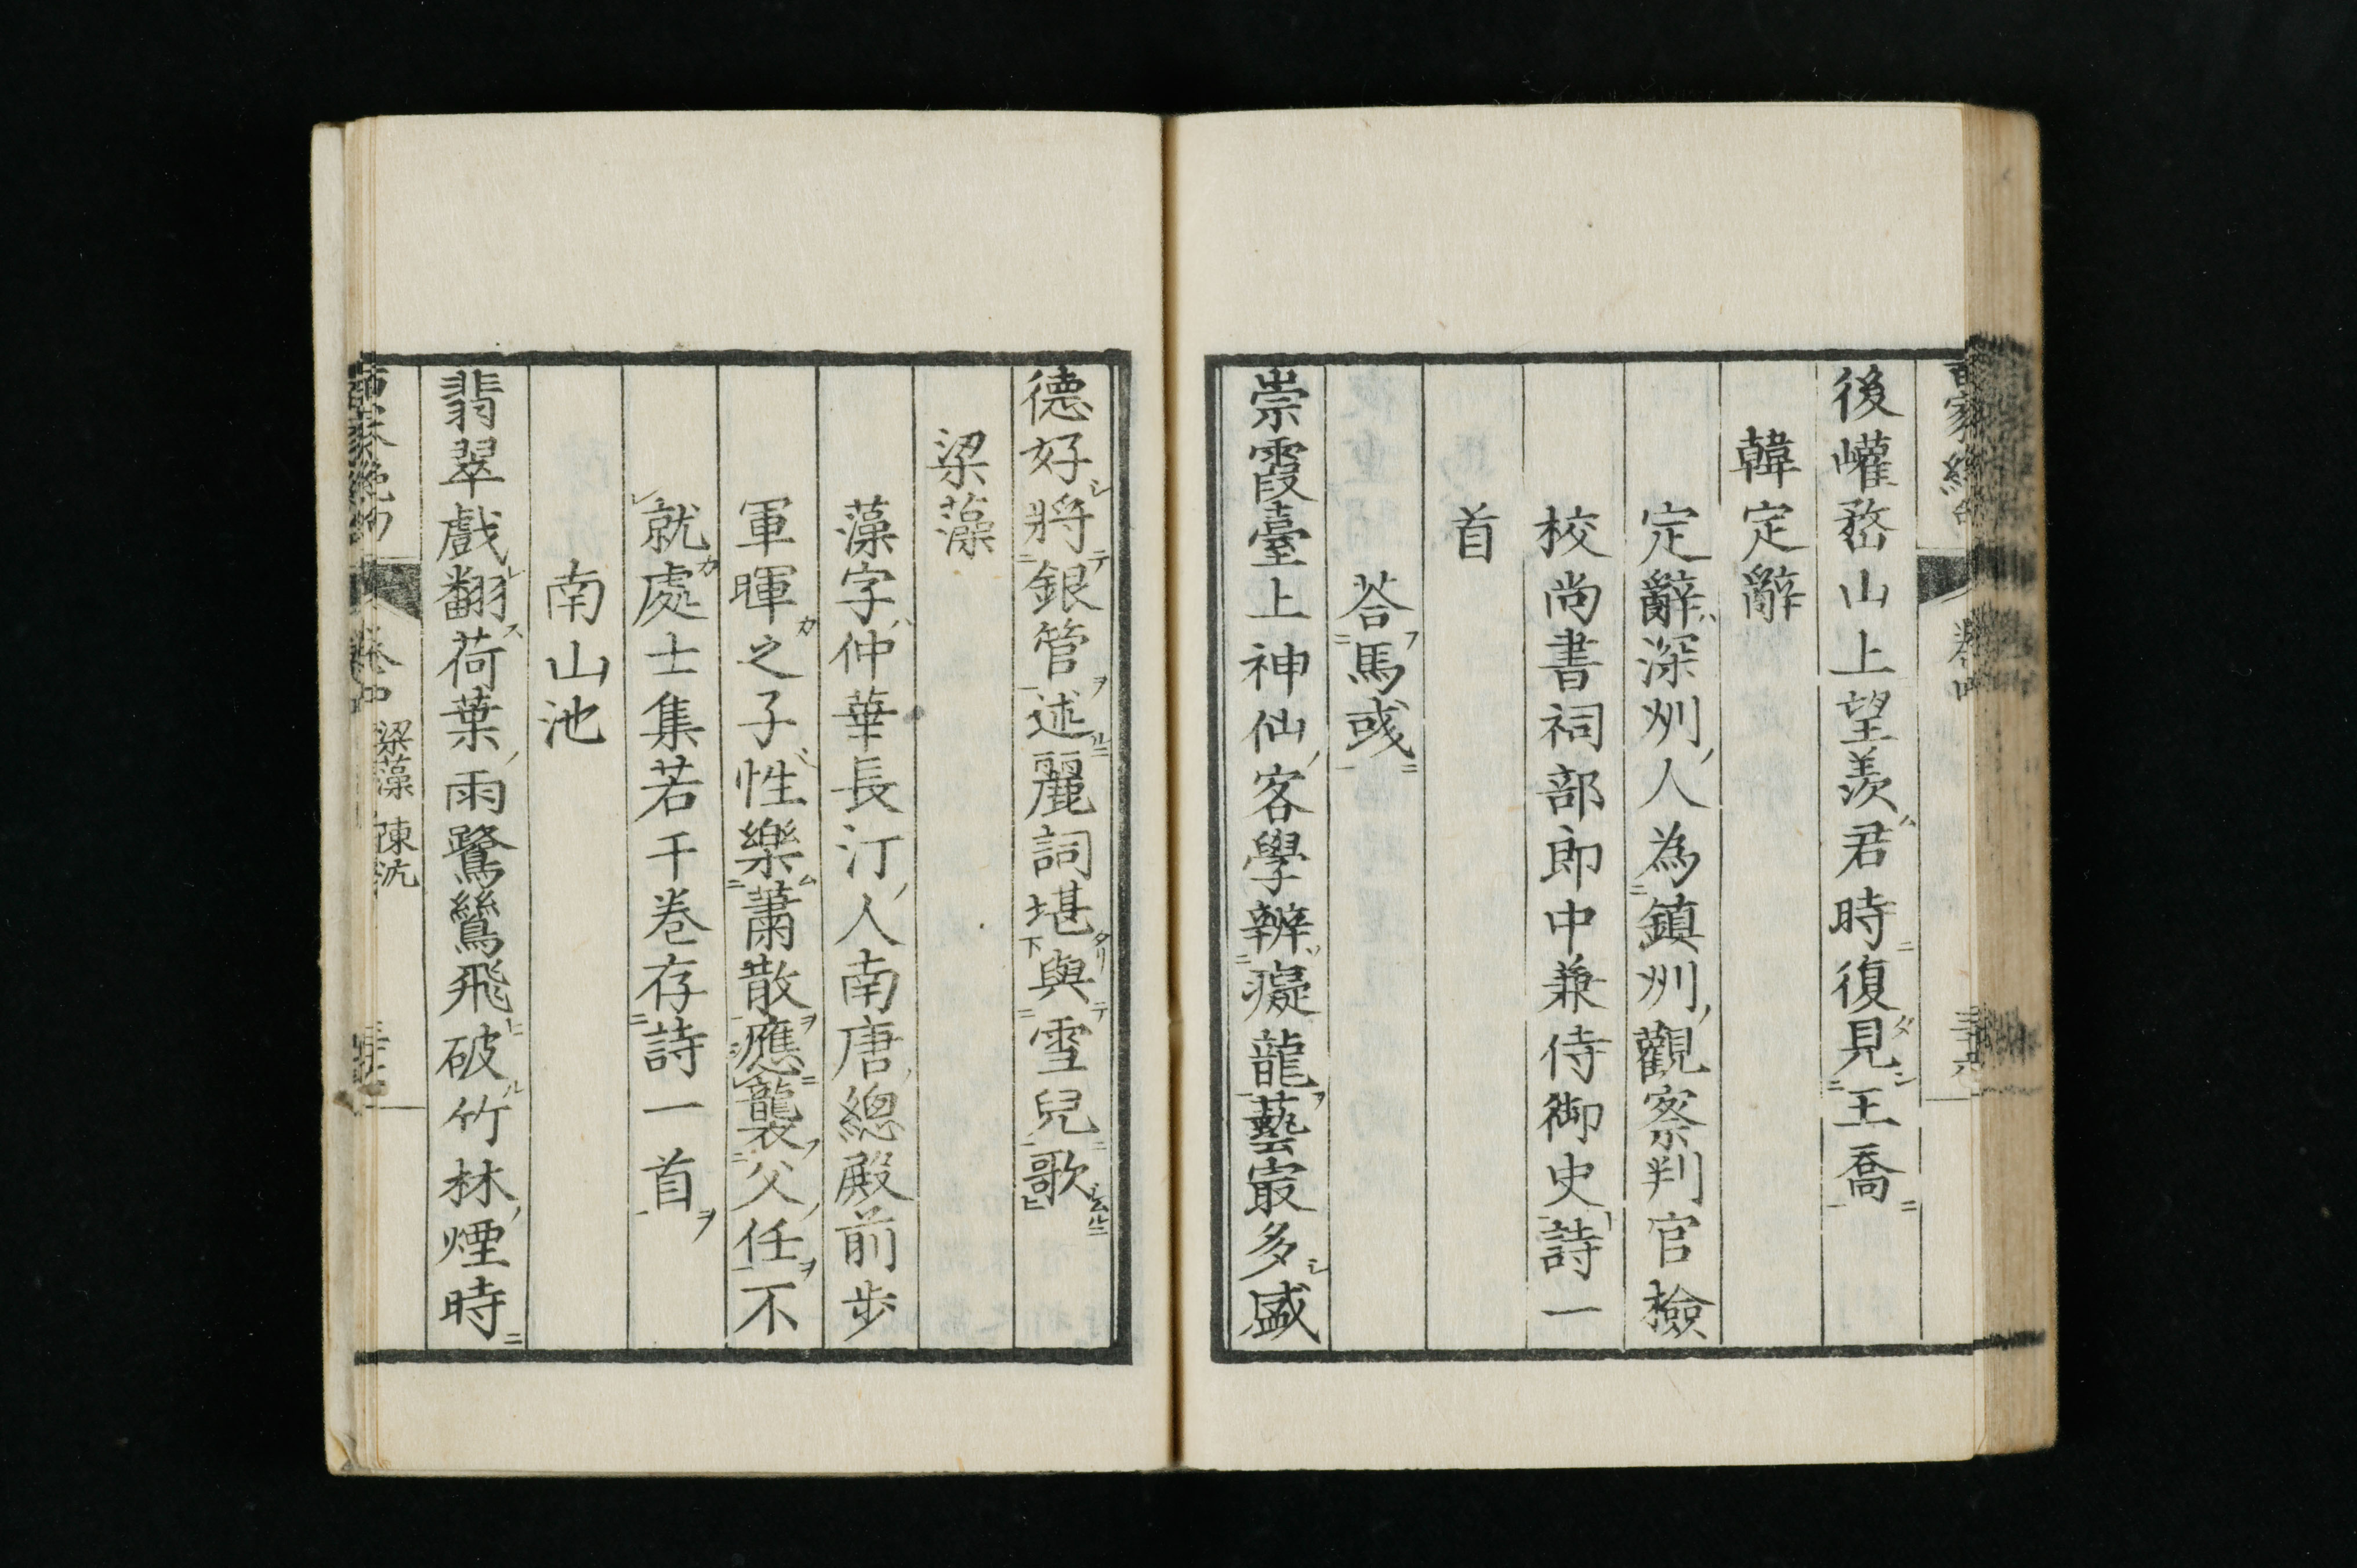 後巏嵍山上望羨君時復見王喬
韓定辭
定辭深州人為鎮州觀察判官檢
校尚書祠部郎中兼侍御史詩一
首
荅馬彧
崇霞臺上神仙客學辨癡龍藝㝡多盛
德好將銀管述麗詞堪與雪兒歌
梁藻
藻字仲華長汀人南唐總殿前步
軍暉之子性樂蕭散應襲父任不
就處士集若干卷存詩一首
南山池
翡翠戲翻荷葉雨鷺鷥飛破竹林煙時
梁藻 陳沆